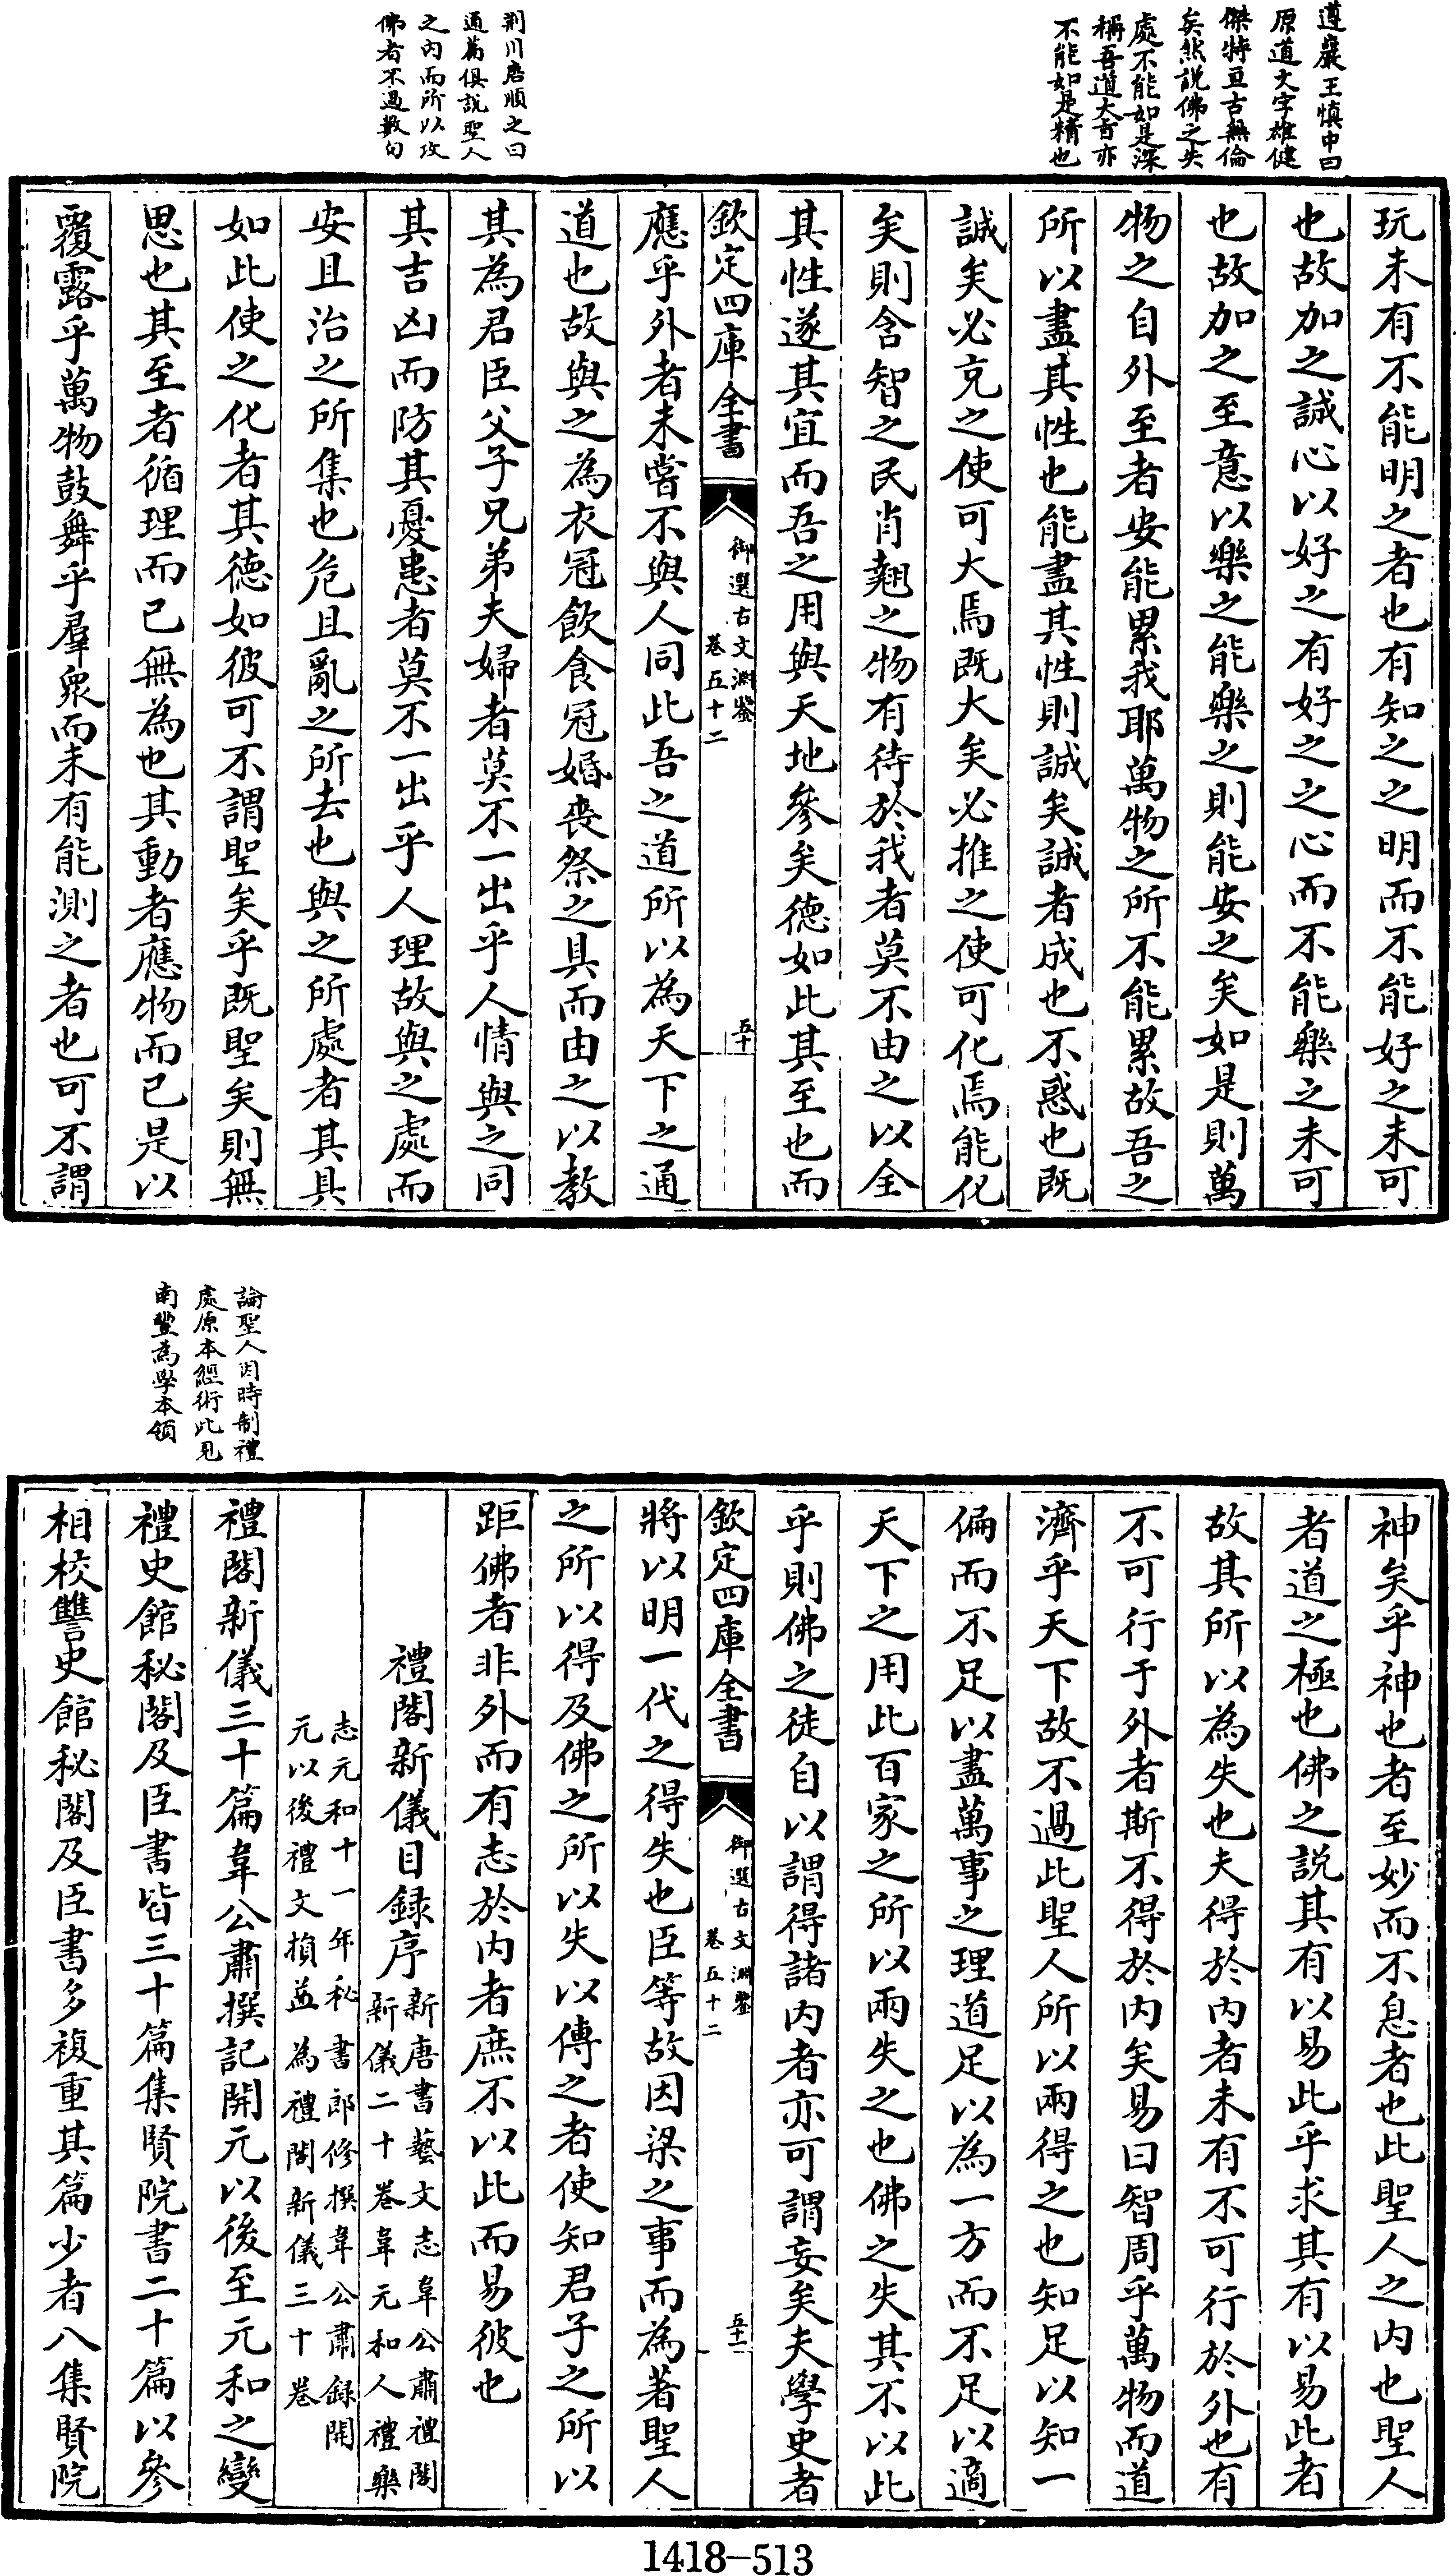 遵巖王慎中曰
原道文字雄健
傑特亘古無倫
矣然説佛之失
處不能如是深
稱吾道大旨亦
不能如是精也
荆川唐順之曰
通篇俱説聖人
之内而所以攻
佛者不過數句
玩未有不能明之者也有知之之明而不能好之未可
也故加之誠心以好之有好之之心而不能樂之未可
也故加之至意以樂之能樂之則能安之矣如是則萬
物之自外至者安能累我耶萬物之所不能累故吾之
所以盡其性也能盡其性則誠矣誠者成也不惑也既
誠矣必充之使可大焉既大矣必推之使可化焉能化
矣則含智之民肖翹之物有待於我者莫不由之以全
其性遂其宜而吾之用與天地參矣德如此其至也而
欽定四庫全書
御選古文淵鑒
卷五十二
五十
應乎外者未嘗不與人同此吾之道所以為天下之通
道也故與之為衣冠飲食冠婚喪祭之具而由之以教
其為君臣父子兄弟夫婦者莫不一出乎人情與之同
其吉凶而防其憂患者莫不一出乎人理故與之處而
安且治之所集也危且亂之所去也與之所處者其具
如此使之化者其德如彼可不謂聖矣乎既聖矣則無
思也其至者循理而已無為也其動者應物而已是以
覆露乎萬物鼓舞乎羣衆而未有能測之者也可不謂
論聖人因時制禮
處原本經術此見
南豐為學本領
神矣乎神也者至妙而不息者也此聖人之内也聖人
者道之極也佛之説其有以易此乎求其有以易此者
故其所以為失也夫得於内者未有不可行於外也有
不可行于外者斯不得於内矣易曰智周乎萬物而道
濟乎天下故不過此聖人所以兩得之也知足以知一
偏而不足以盡萬事之理道足以為一方而不足以適
天下之用此百家之所以兩失之也佛之失其不以此
乎則佛之徒自以謂得諸内者亦可謂妄矣夫學史者
欽定四庫全書
御選古文淵鑒
卷五十二
五十一
將以明一代之得失也臣等故因梁之事而為著聖人
之所以得及佛之所以失以傳之者使知君子之所以
距佛者非外而有志於内者庶不以此而易彼也
禮閣新儀目録序
新唐書藝文志韋公肅禮閣
新儀二十卷韋元和人禮樂
志元和十一年秘書郎修撰韋公肅録開
元以後禮文損益為禮閣新儀三十卷
禮閣新儀三十篇韋公肅撰記開元以後至元和之變
禮史館秘閣及臣書皆三十篇集賢院書二十篇以參
相校讐史館秘閣及臣書多複重其篇少者八集賢院
1418-513